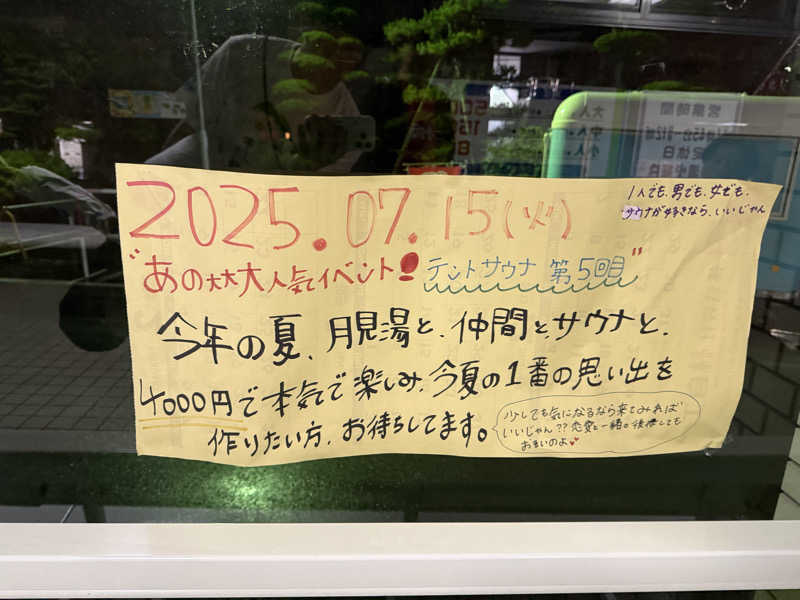 2025.07.15(火)
1人でも、男でも、女でも、
サウナが好きなら、いいじゃん
"あの大大大人気イベント! テントサウナ 第5回目"
今年の夏、月見湯と、仲間と、サウナと、
4000円で本気で楽しみ、今夏の1番の思い出を
作りたい方、お待ちしてます。
少しでも気になるなら来てみれば
いいじゃん?? 恋愛と一緒。後悔しても
おそいのよ
営業時間
定休日
大人
中人
小人